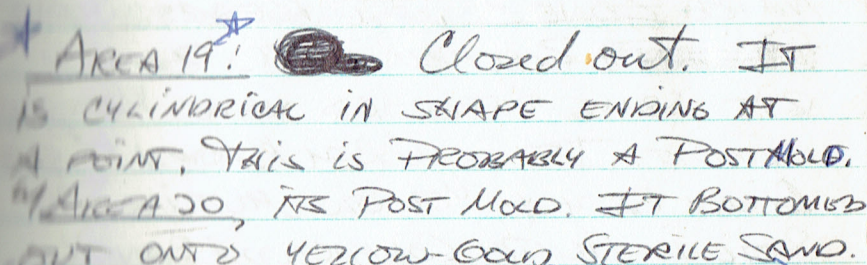 * AREA 19: Closed out. IT
IS CYLINDRICAL IN SHAPE ENDING AT
A POINT. THIS IS PROBABLY A POSTMOLD.
AREA 20, ITS POST MOLD. IT BOTTOMED
OUT ONTO YELLOW-GOLD STERILE SAND.